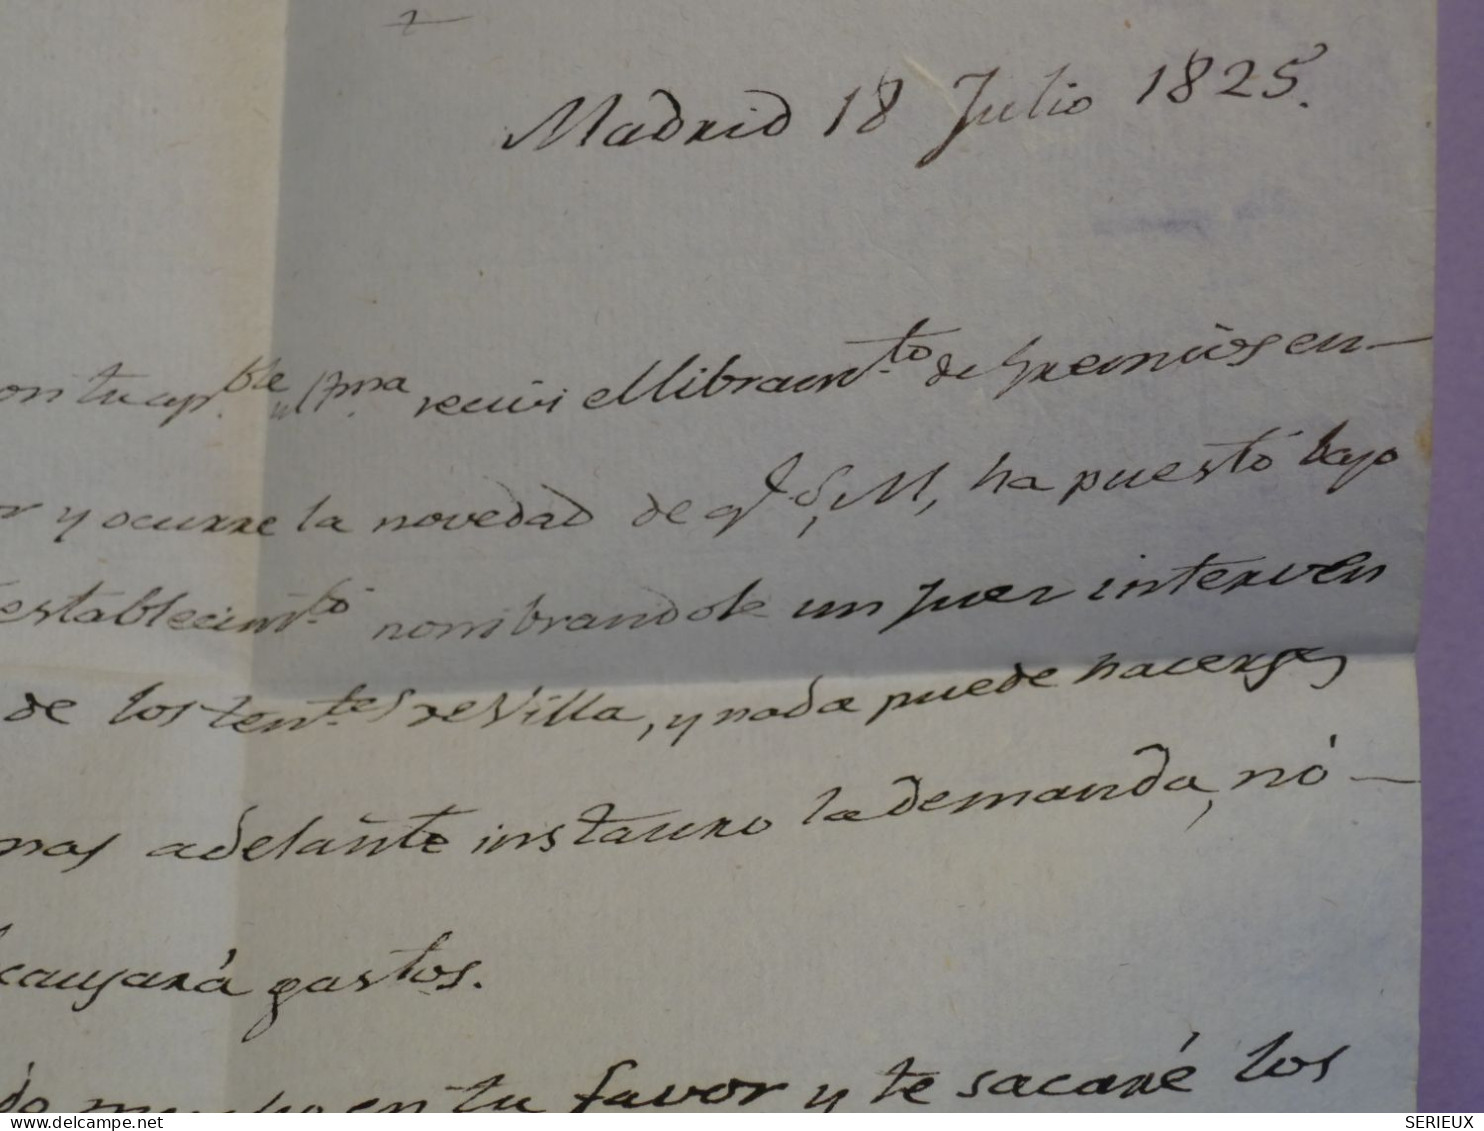 Madrid 18 Julio 1825.
on tu ap.ble ultma recivi el libram.to de Gremios en—
r y ocurre la novedad de q.e S.M, ha puesto bajo
establecim.to nombrandole un juez interven
de los ten.tes de Villa, y nada puede hacerse,
mas adelante instauro la demanda, nó—
causará gastos.
do mucho en tu favor y te sacaré los
SERIEUX